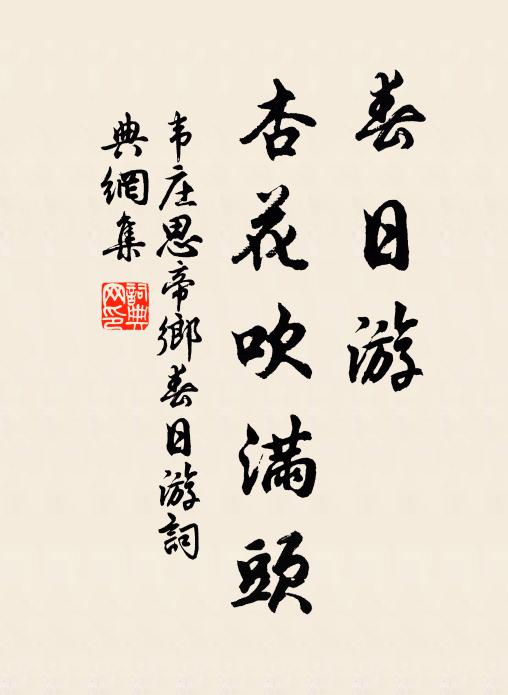 春日游
杏花吹滿頭
韦庄思帝鄉春日游詞
典網集
詞典
网印